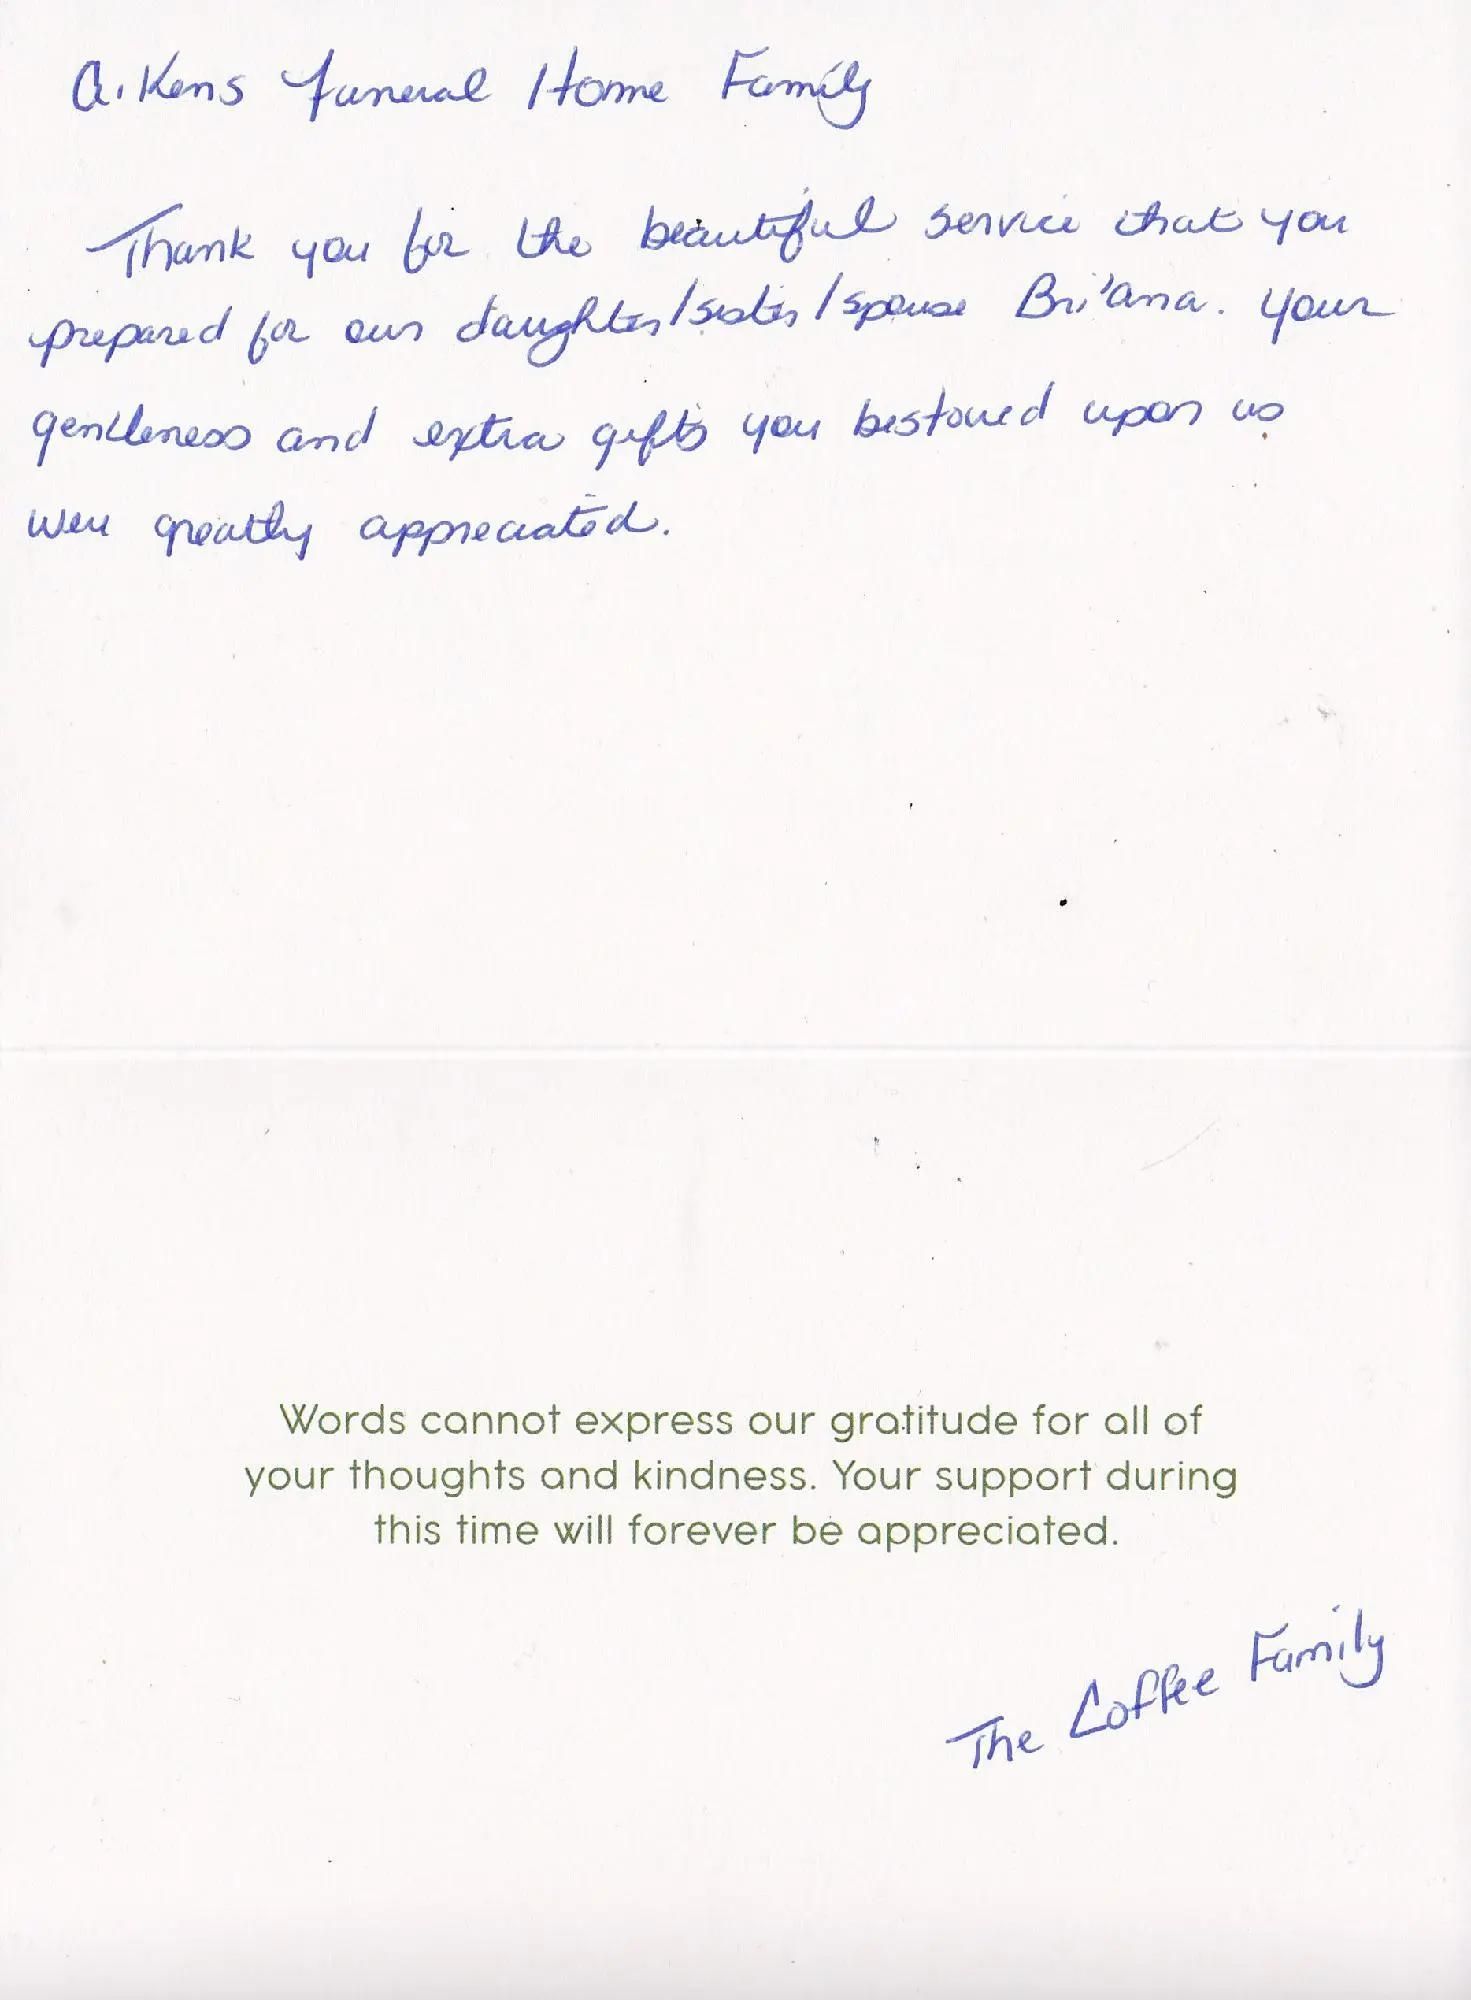 Aikens Funeral Home Family
Thank you for the beautiful service that you
prepared for our daughter/sister/spouse Bri'Ana. Your
gentleness and extra gifts you bestowed upon us
were greatly appreciated.
Words cannot express our gratitude for all of
your thoughts and kindness. Your support during
this time will forever be appreciated.
The Coffee Family